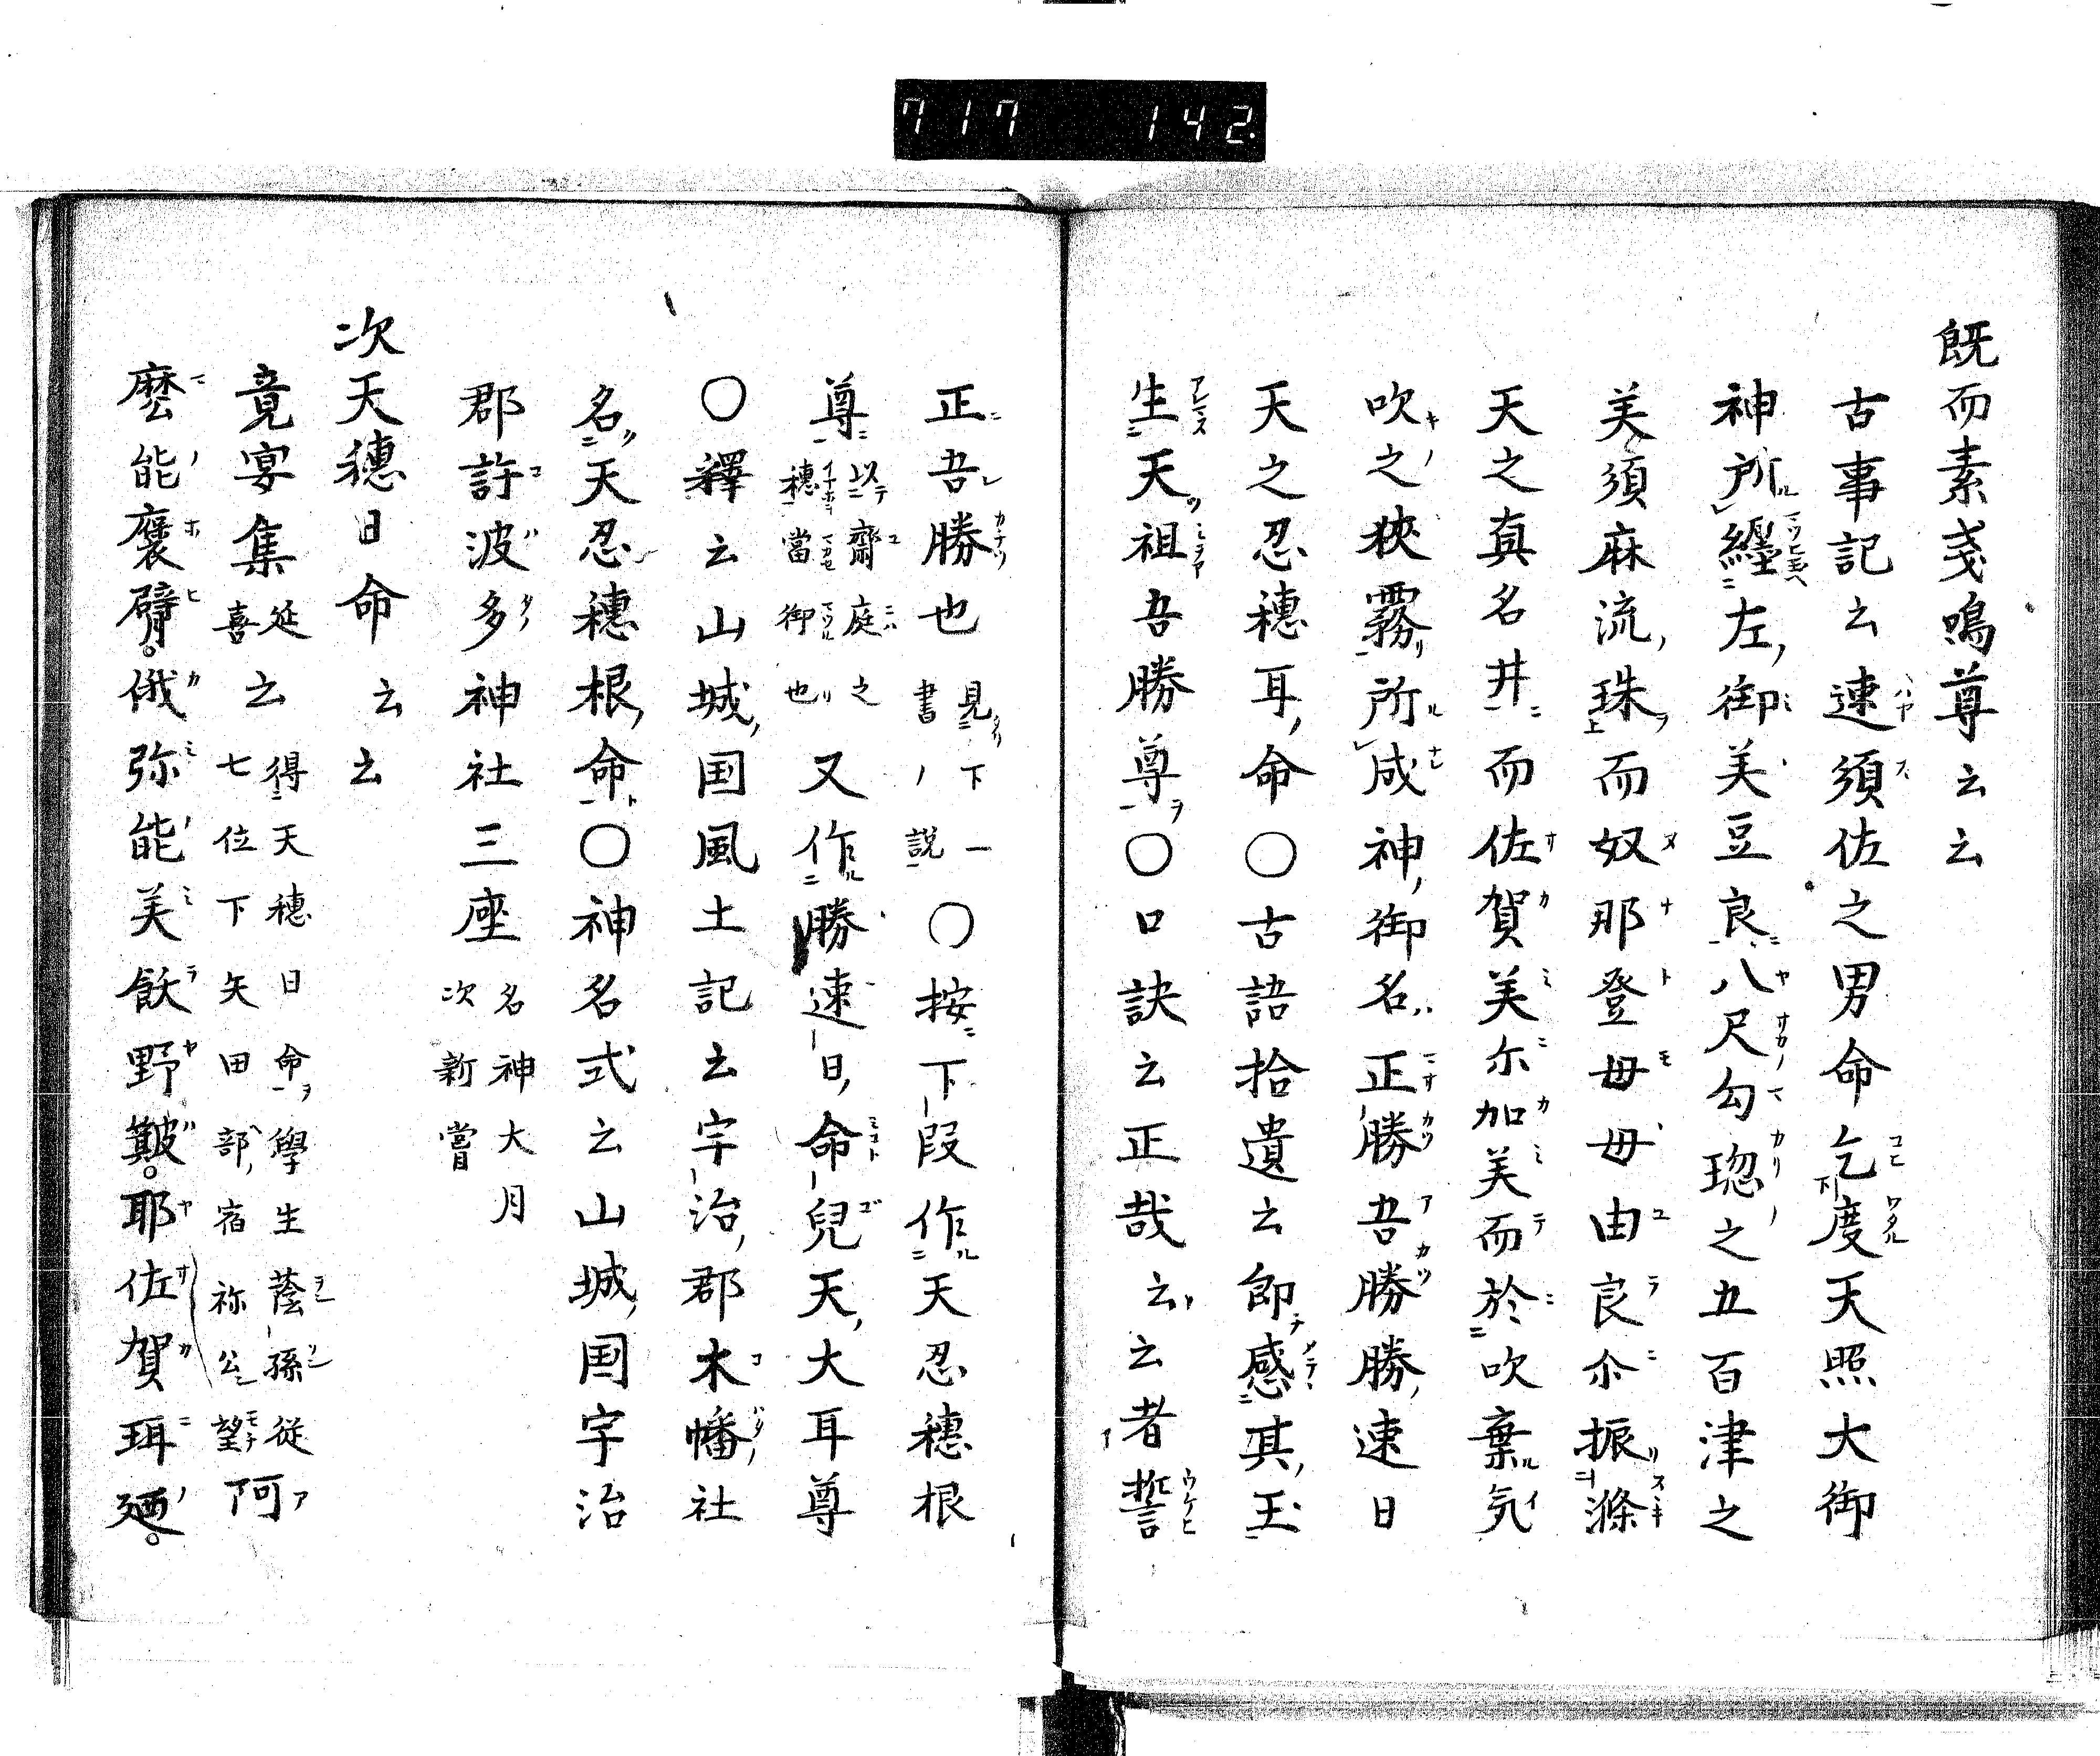 717 142
既而素戔嗚尊云云
古事記云速須佐之男命乞度天照大御
神所纒左御美豆良八尺勾璁之五百津之
美須麻流珠而奴那登母母由良尒振滌
天之真名井而佐賀美尓加美而於吹棄気
吹之狭霧所成神御名正勝吾勝勝速日
天之忍穂耳命○古語拾遺云即感其玉
生天祖吾勝尊○口訣云正哉云云者誓
正吾勝也見下一書ノ説○按下段作天忍穂根
尊以齋庭之穂當御也又作勝速日命兒天大耳尊
○釋云山城国風土記云宇治郡木幡社
名天忍穂根命○神名式云山城国宇治
郡許波多神社三座名神大月次新嘗
次天穂日命云云
竟宴集延喜云得天穂日命學生蔭孫従七位下矢田部宿祢公望阿
麽能褒臂俄弥能美飫野難耶佐賀珥廼